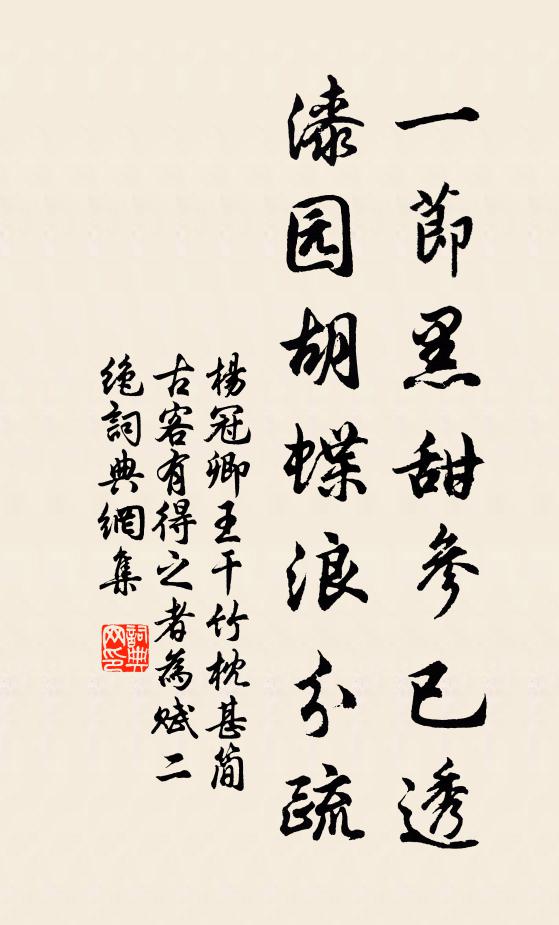 一節黑甜參已透
漆园胡蝶浪分疏
楊冠卿王干竹枕甚簡
古客有得之者為赋二
绝詞典網集
詞典网印